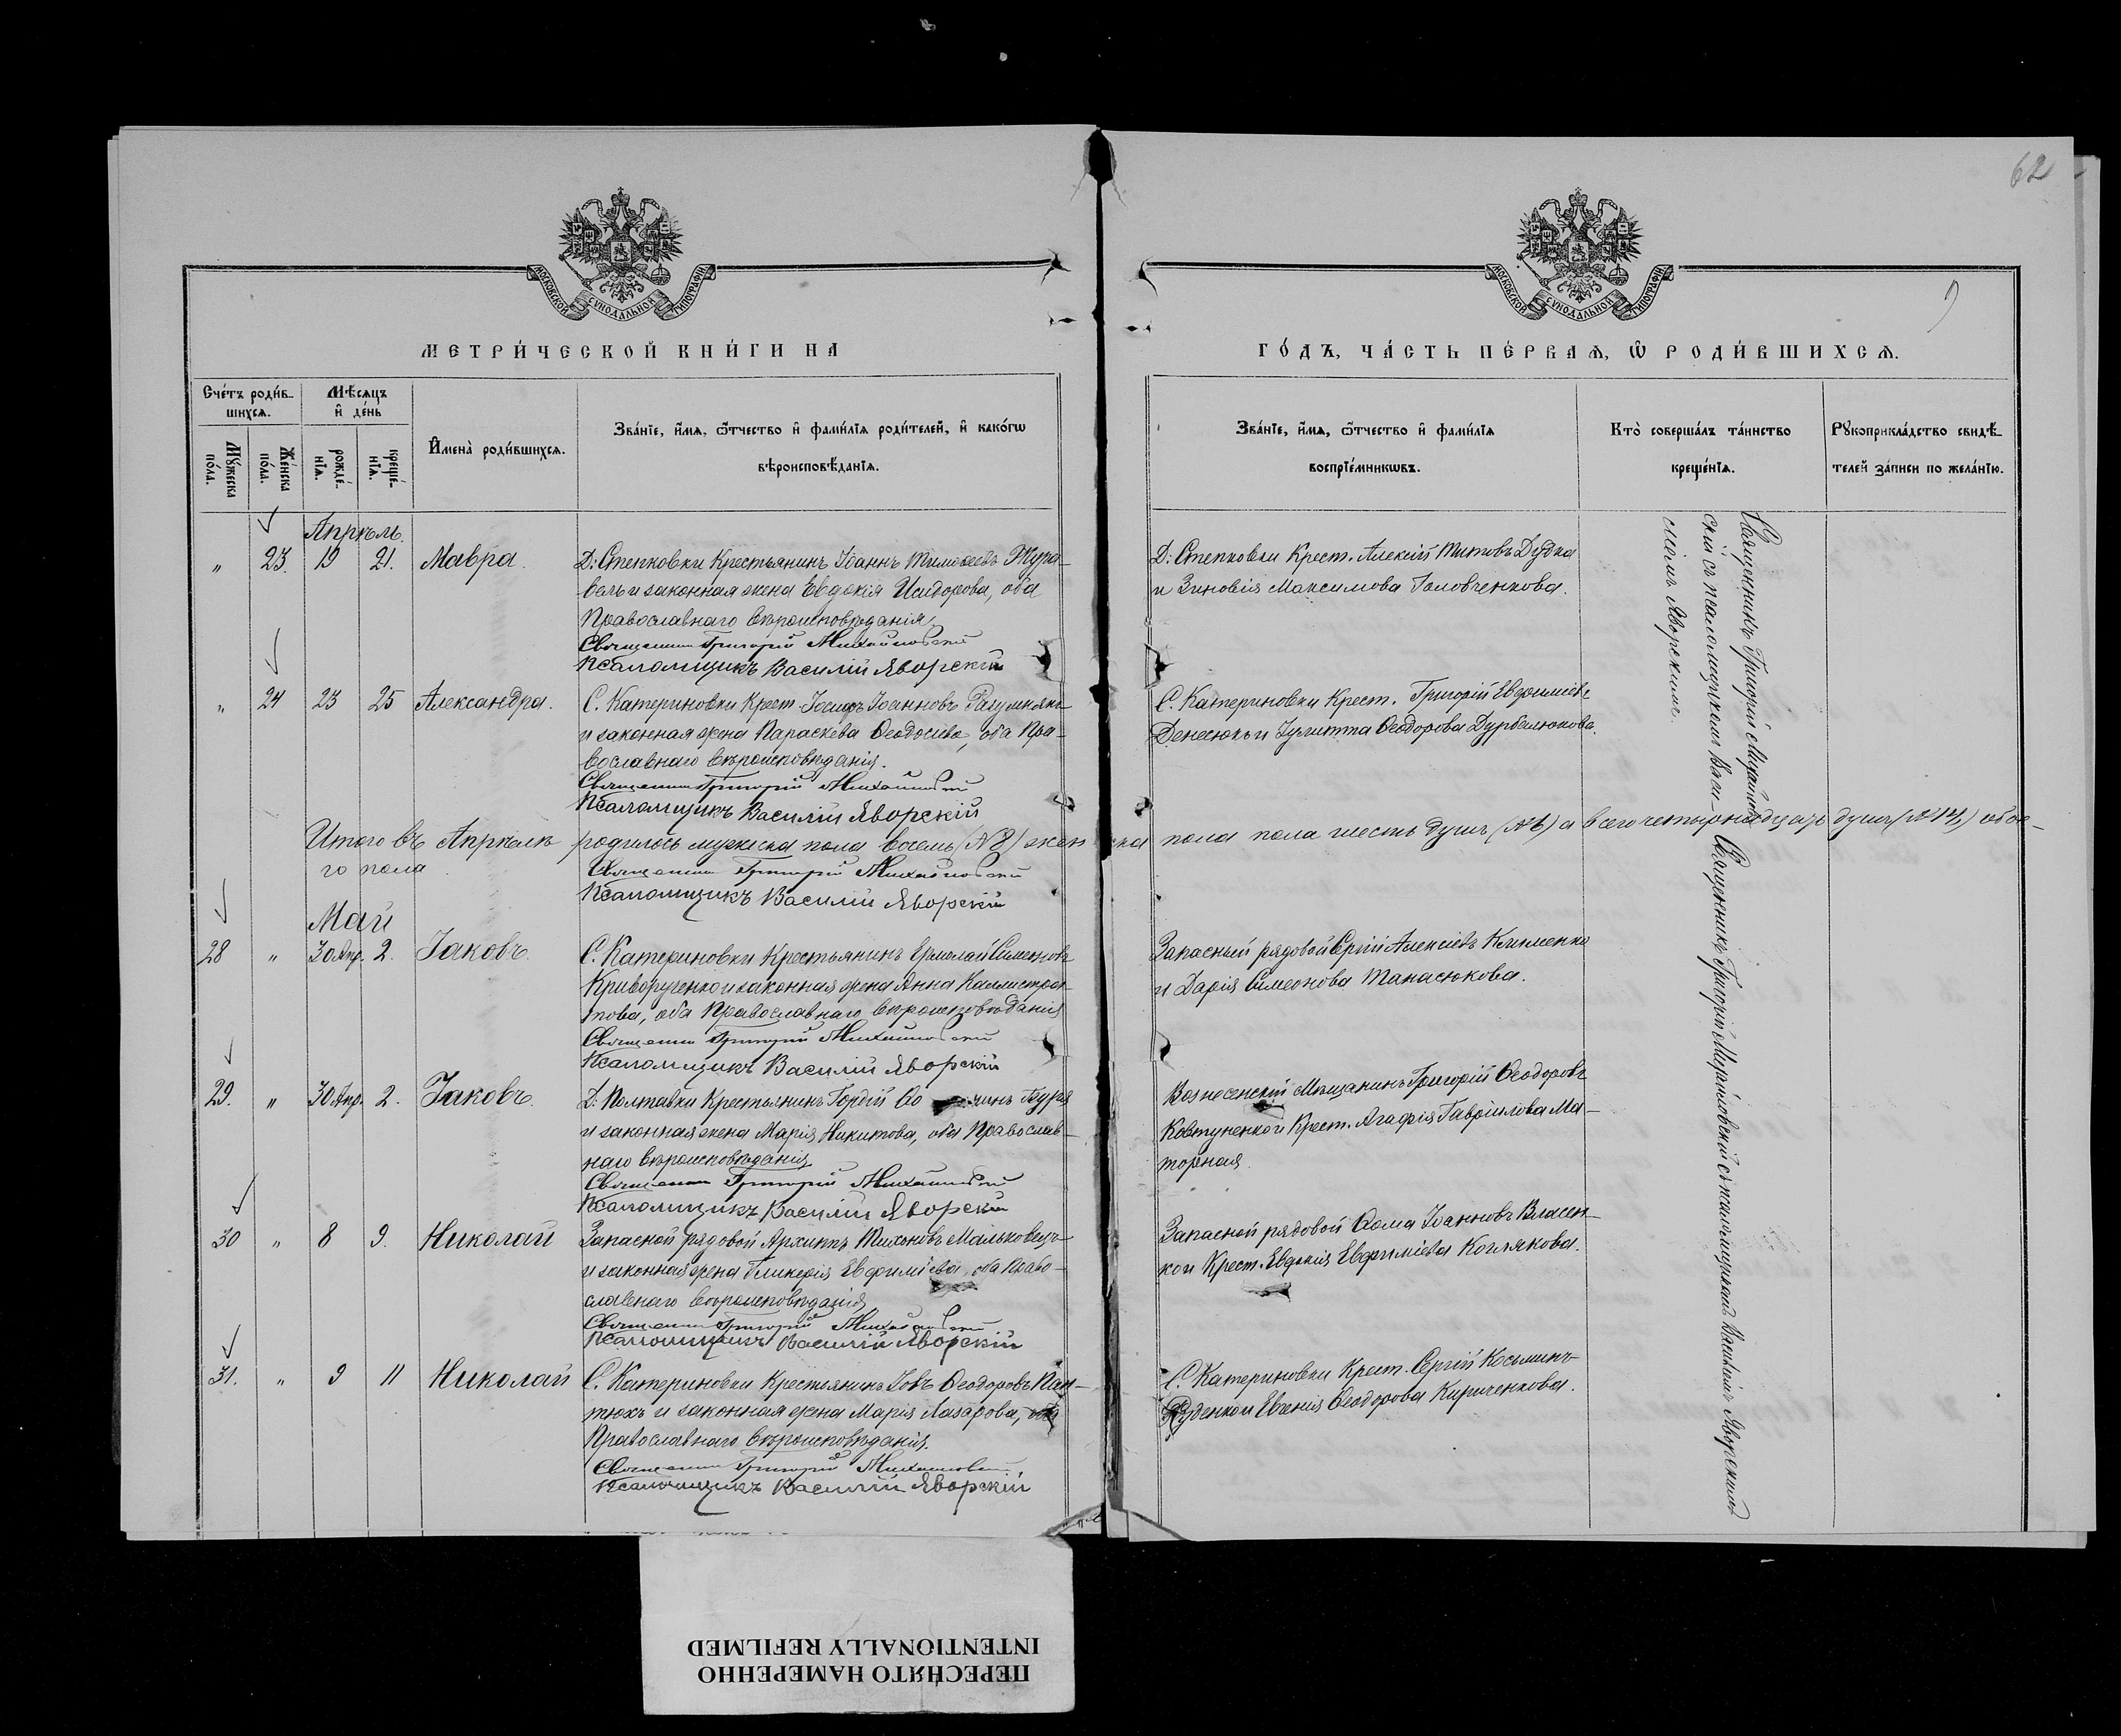 62
МОСКОВСКОЙ СУНОДАЛЬНОЙ ТИПОГРАФІИ
МОСКОВСКОЙ СУНОДАЛЬНОЙ ТИПОГРАФІИ
9
МЕТРИ́ЧЕСКОЙ КНИ́ГИ НА
ГО́ДЪ, ЧА́СТЬ ПЕ́РВАѦ, Ѡ҆ РОДИ́ВШИХСѦ.
Сче́тъ роди́в-
шихсѧ.
Мѣ́сѧцъ
и҆ де́нь
Мꙋ́жеска
по́ла.
Же́нска
по́ла.
рожде́-
нїѧ.
креще́-
нїѧ.
И҆мена̀ роди́вшихсѧ.
Зва́нїе, и҆́мѧ, ѻ҆́тчество и҆ фами́лїѧ роди́телей, и҆ како́гѡ
вѣроисповѣ́данїѧ.
Зва́нїе, и҆́мѧ, ѻ҆́тчество и҆ фами́лїѧ
воспрїе́мникѡвъ.
Кто̀ соверша́лъ та́инство
креще́нїѧ.
Рꙋкоприкла́дство свидѣ́-
телей за́писи по жела́нїю.
Апрѣль.
" 23. 19 21. Мавра.
Д: Степковки Крестьянинъ Іоаннъ Тимоѳеевъ Жура-
вель и законная жена Евдокія Исидорова, оба
Православнаго вѣроисповѣданія.
Священникъ Григорій Михайловскій
Псаломщикъ Василій Яворскій
Д: Степковки Крест. Алексій Титовъ Дудка
и Зиновія Максимова Головченкова.
Священникъ Григорій Михайлов-
скій съ псаломщикомъ Васи-
ліемъ Яворскимъ.
" 24 23 25 Александра.
С. Катериновки Крест. Іосифъ Іоанновъ
и законная жена Параскева Ѳеодосіева, оба Пра-
вославнаго вѣроисповѣданія.
Священникъ Григорій Михайловскій
Псаломщикъ Василій Яворскій
С. Катериновки Крест. Григорій Евфиміевъ
Денесюкъ и Іулитта Ѳеодорова
Итого въ Апрѣлѣ родилось мужеска пола восемь (№ 8) женска пола пола шесть душъ (№ 6) а всего четырнадцать душъ (№ 14) обое-
го пола
Священникъ Григорій Михайловскій
Псаломщикъ Василій Яворскій
Май
28 " 30 Апр. 2. Іаковъ.
С. Катериновки Крестьянинъ Ермолай Симеоновъ
Криворученко и законная жена Анна Каллистра-
това, оба Православнаго вѣроисповѣданія
Священникъ Григорій Михайловскій
Псаломщикъ Василій Яворскій
Запасный рядовой Сергій Алексіевъ Клименко
и Дарія Симеонова Танасюкова.
Священникъ Григорій Михайловскій съ псаломщикомъ Василіемъ Яворскимъ
29. " 30 Апр. 2. Іаковъ.
Д: Полтавки Крестьянинъ Гордій
и законная жена Марія Никитова, оба Православ-
наго вѣроисповѣданія
Священникъ Григорій Михайловскій
Псаломщикъ Василій Яворскій
Вознесенскій Мѣщанинъ Григорій Ѳеодоровъ
Ковтуненко и Крест. Агафія Гавріилова Ма-
торная.
30 " 8 9. Николай
Запасной рядовой Архиппъ Тихоновъ Мальковецъ
и законная жена Гликерія Евфиміева, оба Право-
славнаго вѣроисповѣданія
Священникъ Григорій Михайловскій
Псаломщикъ Василій Яворскій
Запасной рядовой Ѳома Іоанновъ Власен-
ко и Крест. Евдокія Евфиміева Коглякова.
31. " 9 11 Николай
С. Катериновки Крестьянинъ Іовъ Ѳеодоровъ Пан-
тюхъ и законная жена Марія Лазарова, оба
Православнаго вѣроисповѣданія.
Священникъ Григорій Михайловскій
Псаломщикъ Василій Яворскій
С. Катериновки Крест. Сергій Косьминъ
Руденко и Евгенія Ѳеодорова Кириченкова.
ПЕРЕСНЯТО НАМЕРЕННО
INTENTIONALLY REFILMED